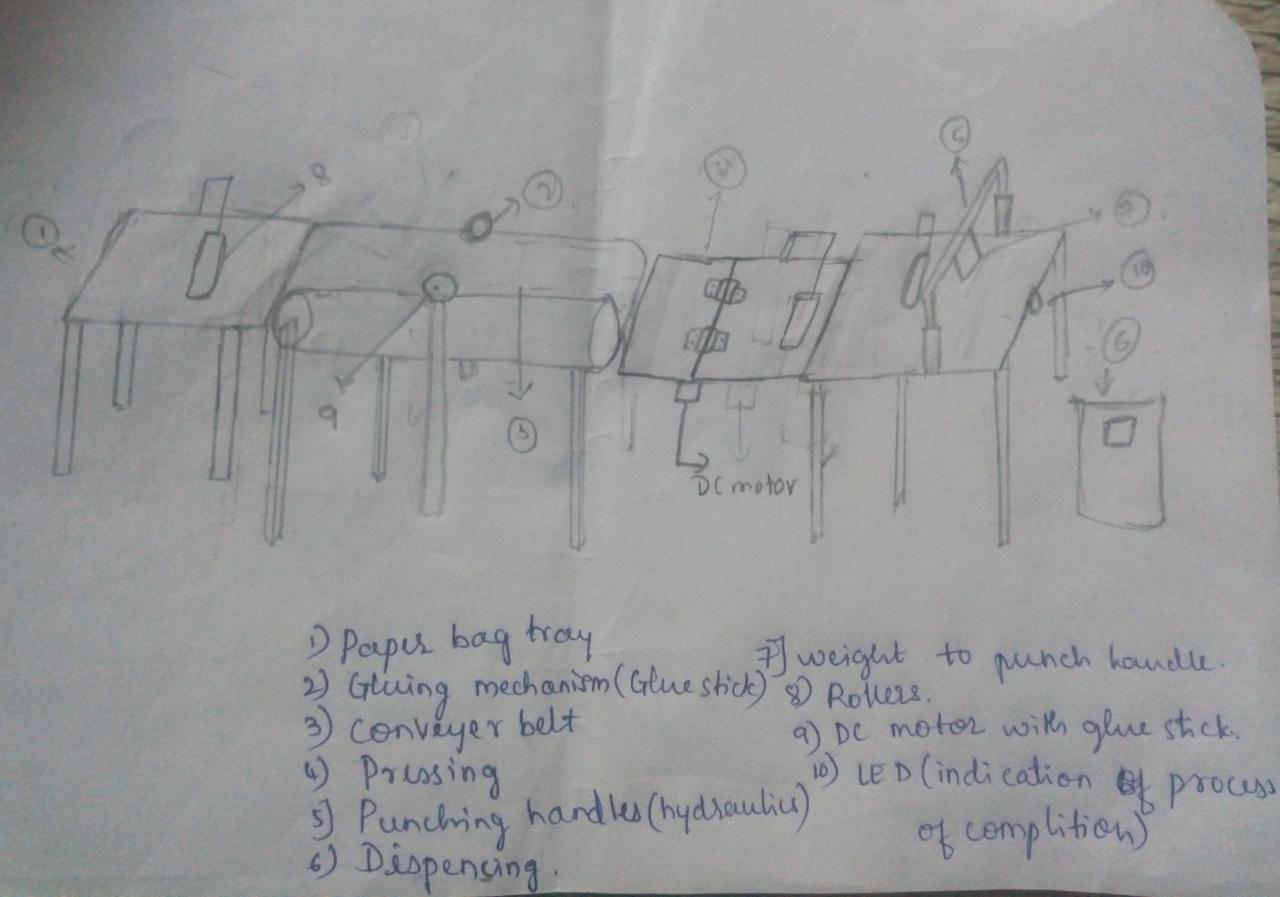 1
8
2
4
5
7
10
6
9
3
DC motor
1) Paper bag tray
2) Gluing mechanism (Glue stick)
3) Conveyer belt
4) Pressing
5) Punching handles (hydraulics)
6) Dispencing.
7) weight to punch handle.
8) Rollers.
9) DC motor with glue stick.
10) LED (indication of process
of complition)